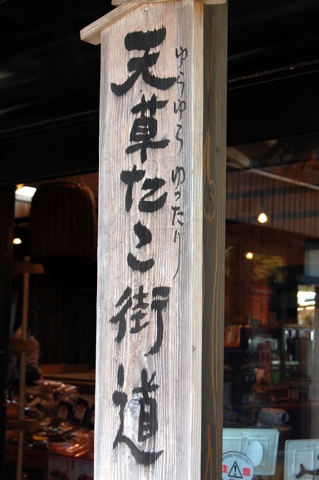 ゆらゆら ゆったり
天草たこ街道
注意